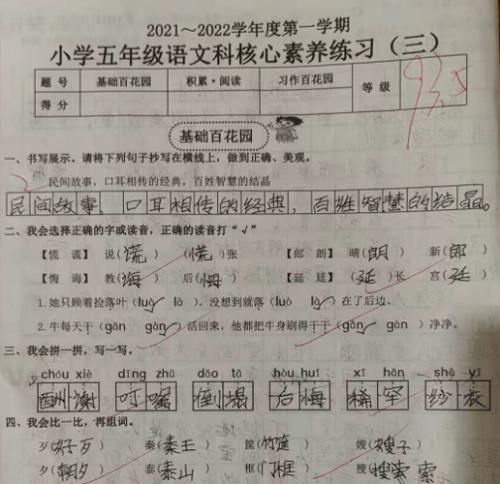 2021～2022学年度第一学期
小学五年级语文科核心素养练习（三）
题 号 基础百花园 积累·阅读 习作百花园 等 级 93.5
得 分
基础百花园
一、书写展示。请将下列句子抄写在横线上，做到正确、美观。
民间故事，口耳相传的经典，百姓智慧的结晶
民间故事，口耳相传的经典，百姓智慧的结晶。
二、我会选择正确的字或读音，正确的读音打“√”
【慌 谎】 说(谎) (慌)张 【郎 朗】 晴(朗) 新(郎)
【悔 诲】 教(诲) 后(悔) 【廷 延】 (延)长 宫(廷)
1.她只顾着捡落叶(luò là)，没想到就落(luò là)在了后边。
2.牛每天干(gān gàn)活回来，他都把牛身刷得干干(gān gàn)净净。
三、我会拼一拼，写一写。
chóu xiè dīng zhǔ dǎo tā hòu huǐ xī hǎn shā yī
酬谢 叮嘱 倒塌 后悔 稀罕 纱衣
四、我会比一比，再组词。
歹(好歹) 秦(秦王) 筐(竹筐) 嫂(嫂子)
夕(朝夕) 泰(泰山) 框(门框) 搜(搜索)